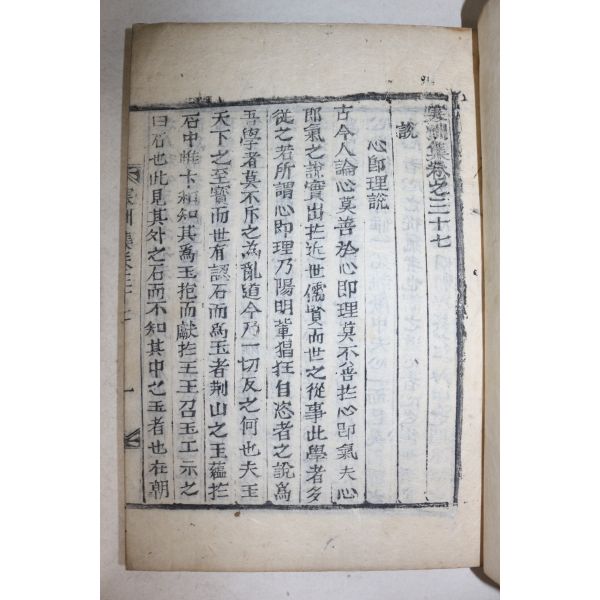 寒洲集卷之三十七
說
心卽理說
古今人論心莫善於心卽理莫不善於心卽氣夫心
卽氣之說實出於近世儒賢而世之從事此學者多
從之若所謂心卽理乃陽明輩猖狂自恣者之說爲
吾學者莫不斥之爲亂道今乃一切反之何也夫玉
天下之至寶而世有認石而爲玉者荊山之玉蘊於
石中惟卞和知其爲玉抱而獻於王王召玉工示之
曰石也此見其外之石而不知其中之玉者也在朝
寒洲集卷三十七
一